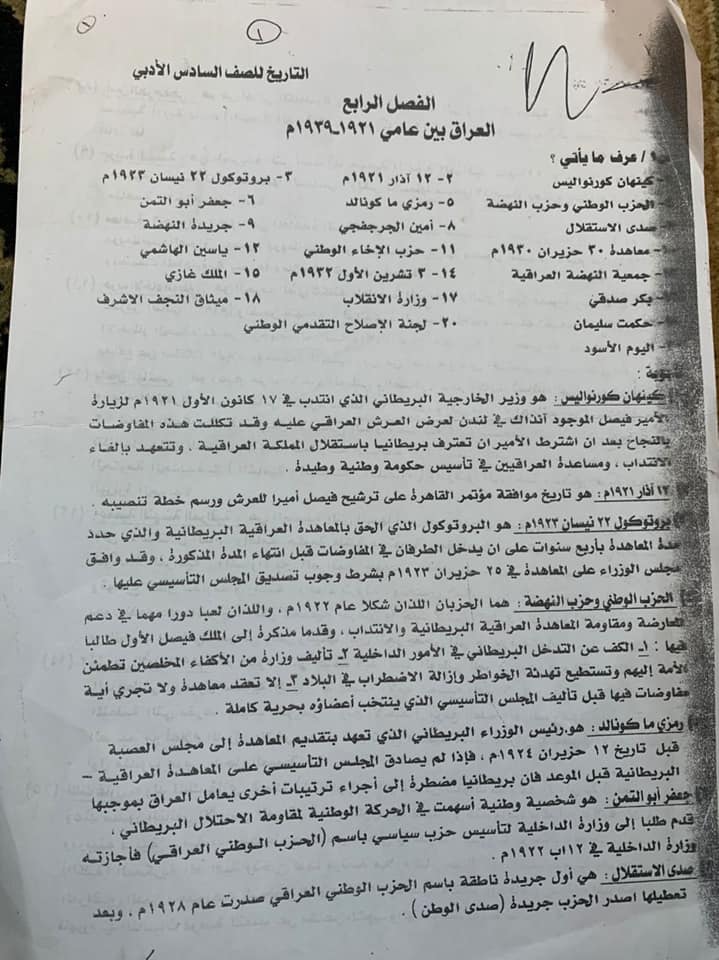 ١
التاريخ للصف السادس الأدبي
الفصل الرابع
العراق بين عامي ١٩٢١ـ١٩٣٩م
س١/ عرف ما يأتي ؟
كينهان كورنواليس ٢- ١٢ آذار ١٩٢١م ٣- بروتوكول ٢٢ نيسان ١٩٢٣م
الحزب الوطني وحزب النهضة ٥- رمزي ما كونالد ٦- جعفر أبو التمن
صدى الاستقلال ٨- أمين الجرجفجي ٩- جريدة النهضة
معاهدة ٣٠ حزيران ١٩٣٠م ١١- حزب الإخاء الوطني ١٢- ياسين الهاشمي
جمعية النهضة العراقية ١٤- ٣ تشرين الأول ١٩٣٢م ١٥- الملك غازي
بكر صدقي ١٧- وزارة الانقلاب ١٨- ميثاق النجف الاشرف
حكمت سليمان ٢٠- لجنة الإصلاح التقدمي الوطني
اليوم الأسود
كينهان كورنواليس : هو وزير الخارجية البريطاني الذي انتدب في ١٧ كانون الأول ١٩٢١م لزيارة
الأمير فيصل الموجود آنذاك في لندن لعرض العرش العراقي عليه وقد تكللت هذه المفاوضات
بالنجاح بعد ان اشترط الأمير ان تعترف بريطانيا باستقلال المملكة العراقية . وتتعهد بإلغاء
الانتداب ، ومساعدة العراقيين في تأسيس حكومة وطنية وطيدة .
١٢ آذار ١٩٢١م : هو تاريخ موافقة مؤتمر القاهرة على ترشيح فيصل أميرا للعرش ورسم خطة تنصيبه
بروتوكول ٢٢ نيسان ١٩٢٣م : هو البروتوكول الذي الحق بالمعاهدة العراقية البريطانية والذي حدد
مدة المعاهدة بأربع سنوات على ان يدخل الطرفان في المفاوضات قبل انتهاء المدة المذكورة ، وقد وافق
مجلس الوزراء على المعاهدة في ٢٥ حزيران ١٩٢٣م بشرط وجوب تصديق المجلس التأسيسي عليها .
الحزب الوطني وحزب النهضة : هما الحزبان اللذان شكلا عام ١٩٢٢م ، واللذان لعبا دورا مهما في دعم
المعارضة ومقاومة المعاهدة العراقية البريطانية والانتداب ، وقدما مذكرة إلى الملك فيصل الأول طالبا
فيها : ١ـ الكف عن التدخل البريطاني في الأمور الداخلية ٢ـ تأليف وزارة من الأكفاء المخلصين تطمئن
الأمة إليهم وتستطيع تهدئة الخواطر وإزالة الاضطراب في البلاد ٣ـ إلا تعقد معاهدة ولا تجري أية
مفاوضات فيها قبل تأليف المجلس التأسيسي الذي ينتخب أعضاؤه بحرية كاملة .
رمزي ما كونالد : هو رئيس الوزراء البريطاني الذي تعهد بتقديم المعاهدة إلى مجلس العصبة
قبل تاريخ ١٢ حزيران ١٩٢٤م ، فإذا لم يصادق المجلس التأسيسي على المعاهدة العراقية –
البريطانية قبل الموعد فان بريطانيا مضطرة إلى أجراء ترتيبات أخرى يعامل العراق بموجبها
جعفر أبو التمن : هو شخصية وطنية أسهمت في الحركة الوطنية لمقاومة الاحتلال البريطاني ،
قدم طلبا إلى وزارة الداخلية لتأسيس حزب سياسي باسم (الحزب الوطني العراقي) فأجازته
وزارة الداخلية في ١٢اب ١٩٢٢م .
صدى الاستقلال : هي أول جريدة ناطقة باسم الحزب الوطني العراقي صدرت عام ١٩٢٨م ، وبعد
تعطيلها اصدر الحزب جريدة (صدى الوطن) .